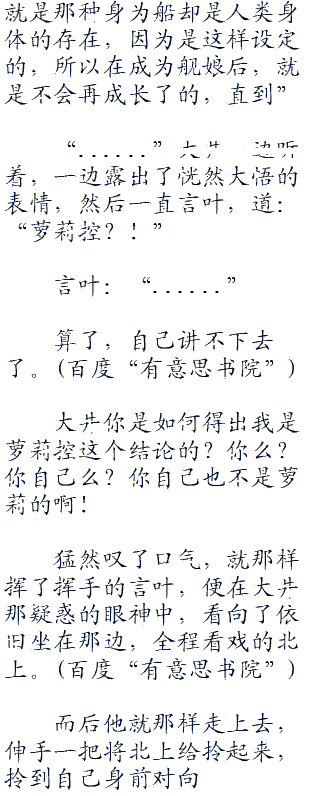 就是那种身为船却是人类身
体的存在，因为是这样设定
的，所以在成为舰娘后，就
是不会再成长了的，直到”
“......”大井一边听
着，一边露出了恍然大悟的
表情，然后一直言叶，道：
“萝莉控？！”
言叶：“......”
算了，自己讲不下去
了。(百度“有意思书院”)
大井你是如何得出我是
萝莉控这个结论的？你么？
你自己么？你自己也不是萝
莉的啊！
猛然叹了口气，就那样
挥了挥手的言叶，便在大井
那疑惑的眼神中，看向了依
旧坐在那边，全程看戏的北
上。(百度“有意思书院”)
而后他就那样走上去，
伸手一把将北上给拎起来，
拎到自己身前对向